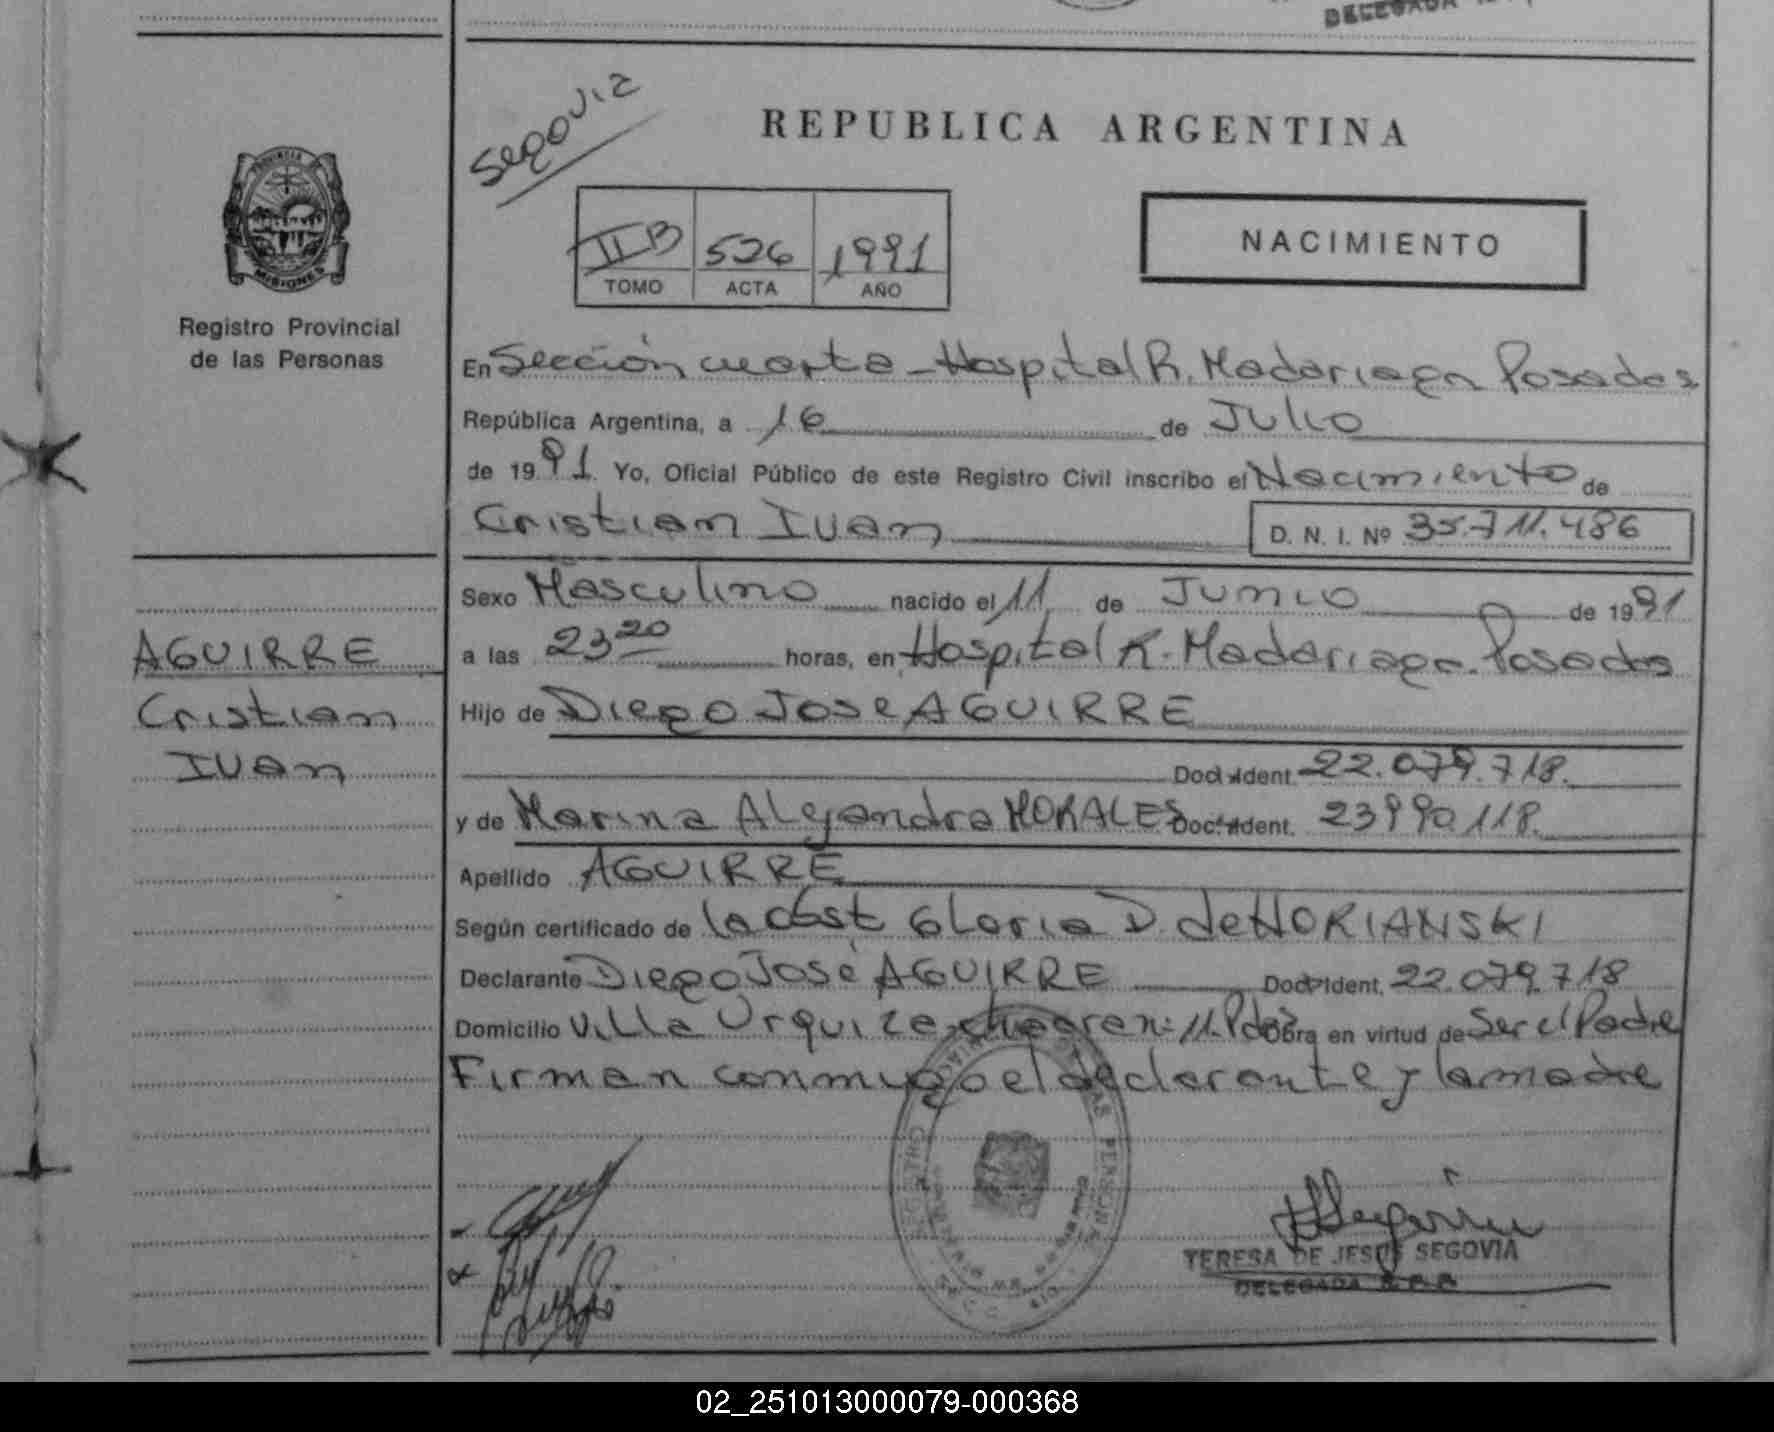 Segovia
REPUBLICA ARGENTINA
PROVINCIA DE
MISIONES
Registro Provincial
de las Personas
IIB 526 1991
TOMO ACTA AÑO
NACIMIENTO
En Sección cuarta - Hospital R. Madariaga Posadas
República Argentina, a 16 de Julio
de 1991. Yo, Oficial Público de este Registro Civil inscribo el Nacimiento de
Cristian Ivan D. N. I. Nº 35.711.486
Sexo Masculino nacido el 11 de Junio de 1991
a las 23 20 horas, en Hospital R. Madariaga. Posadas
Hijo de Diego Jose AGUIRRE
Doc. Ident. 22.079.718.
y de Marina Alejandra MORALES Doc. Ident. 23990.118.
Apellido AGUIRRE
Según certificado de la obst Gloria D. de HORIANSKI
Declarante Diego José AGUIRRE Doc. Ident. 22.079.718
Domicilio Villa Urquiza, chacra n: 11. Pdas Obra en virtud de Ser el Padre
Firman conmigo el declarante y la madre
AGUIRRE
Cristian
Ivan
TERESA DE JESUS SEGOVIA
DELEGADA R.P.P.
02_251013000079-000368